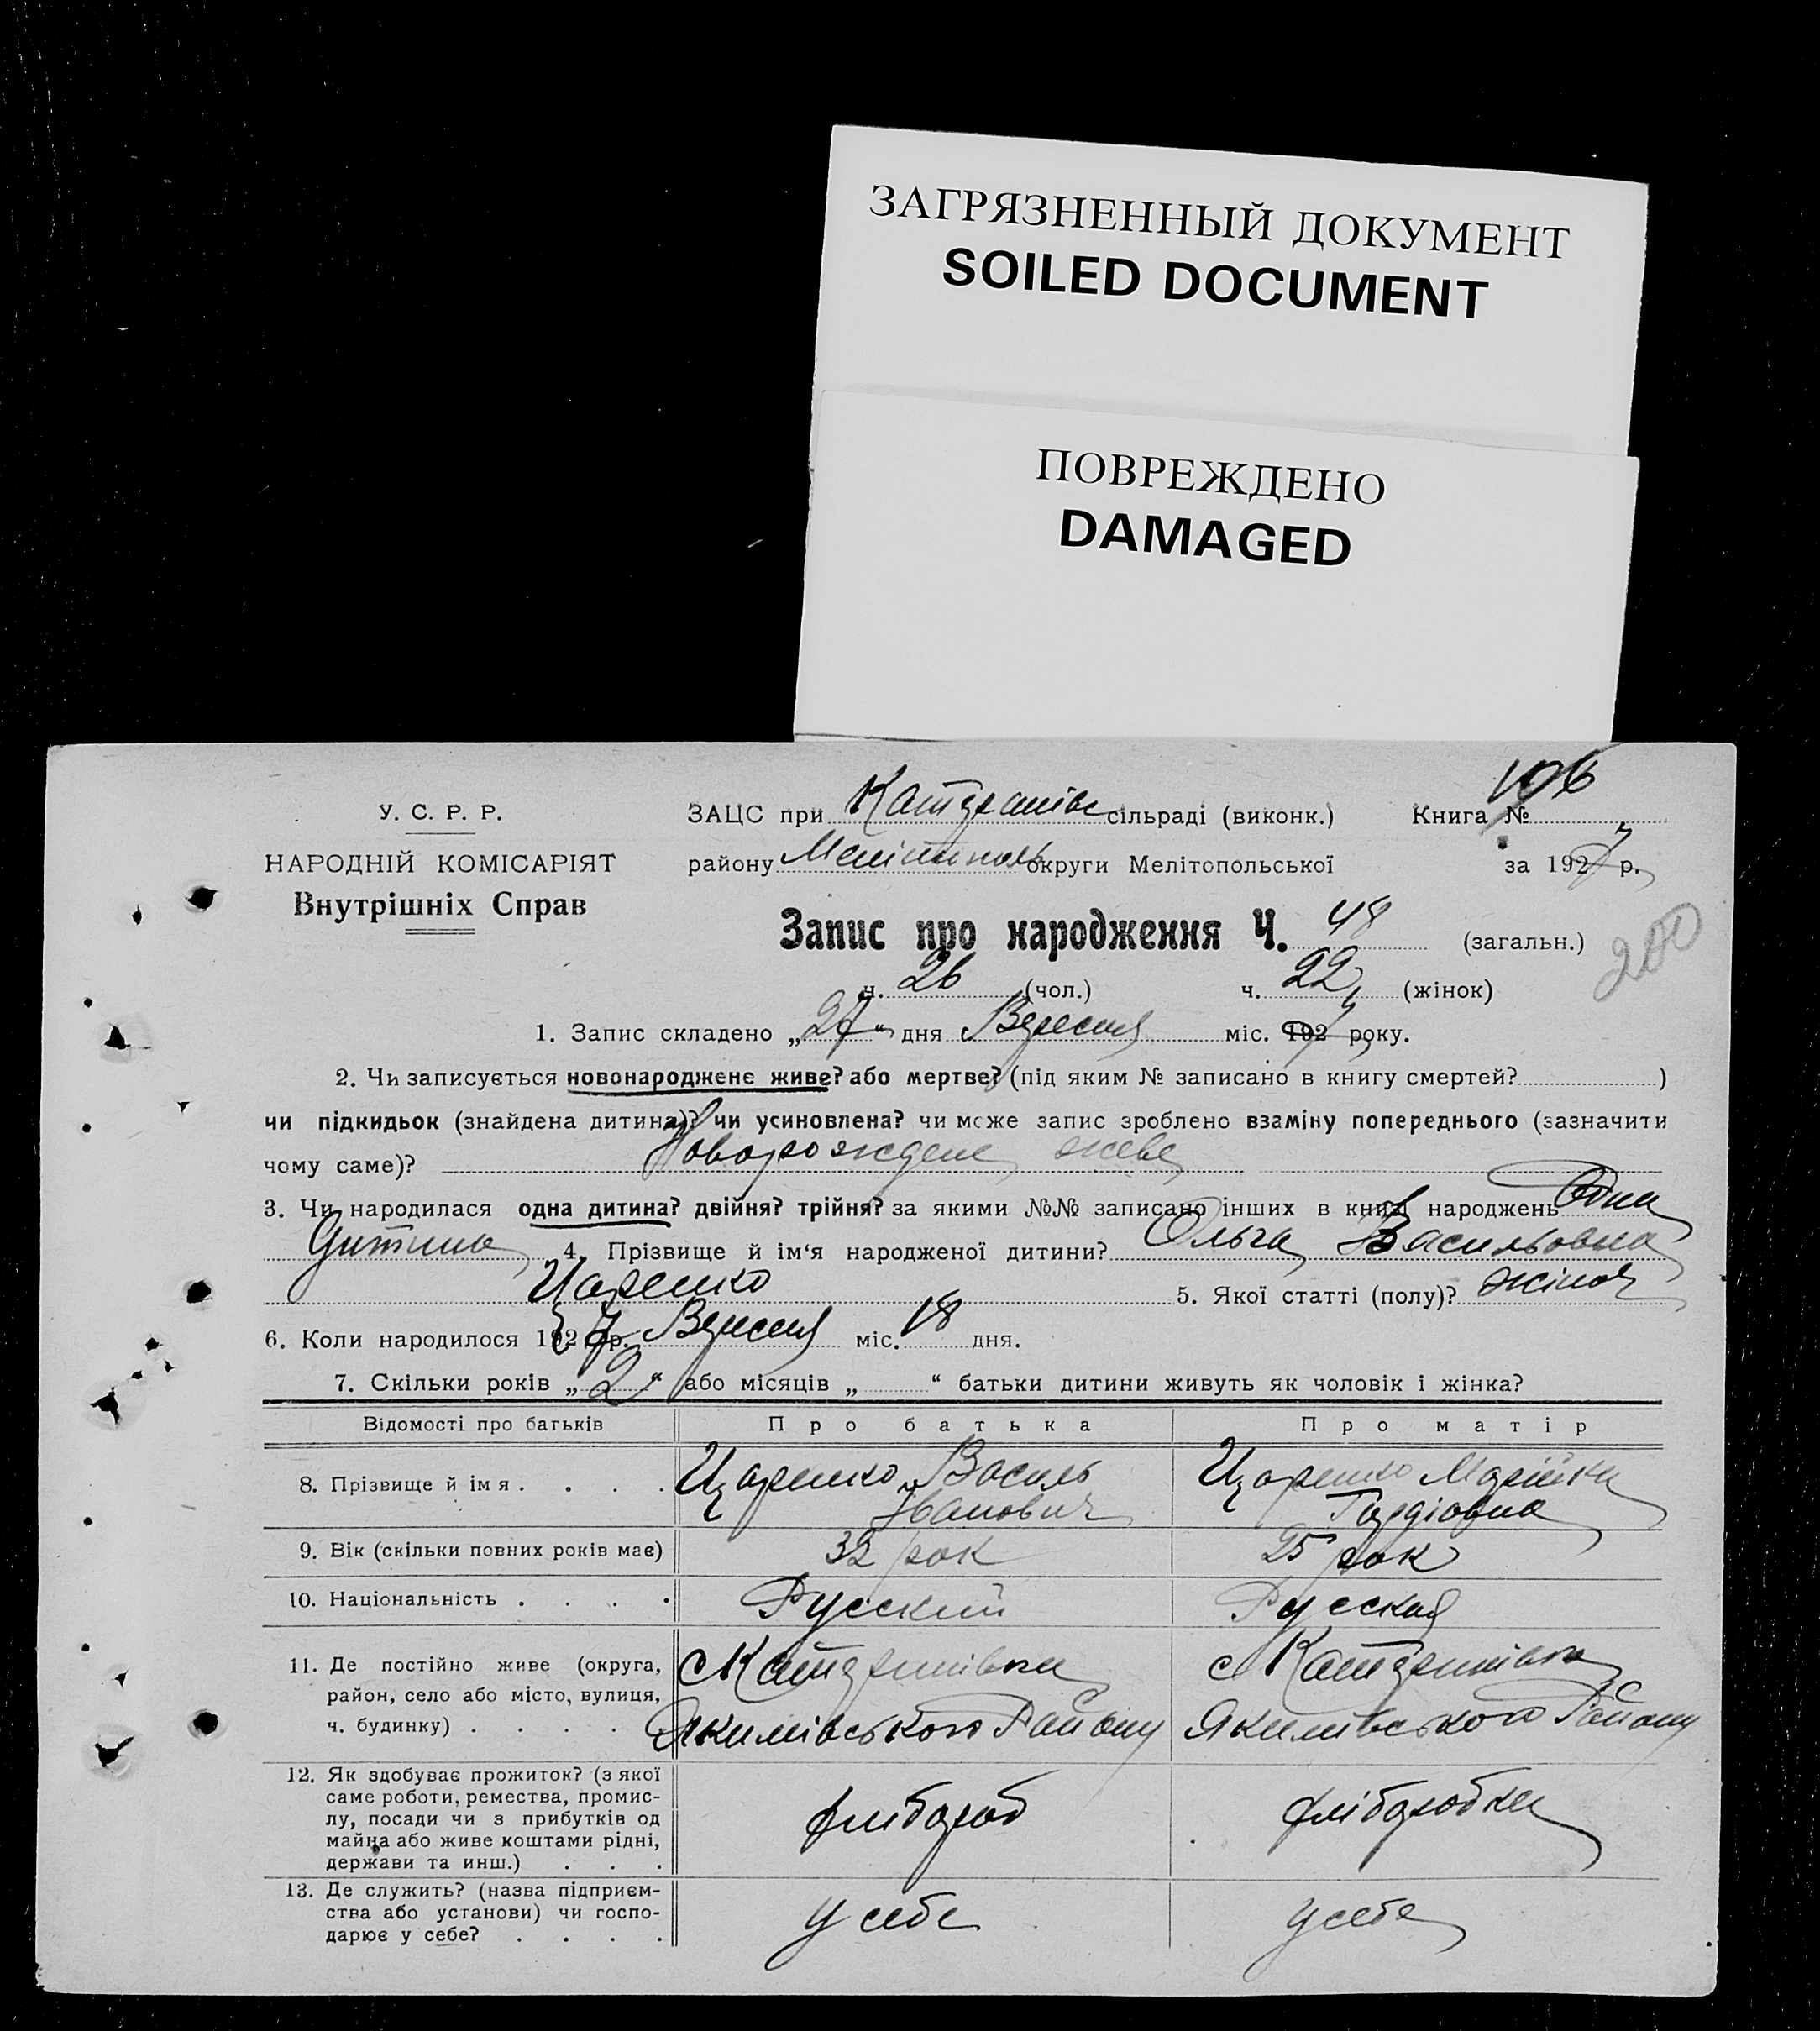 ЗАГРЯЗНЕННЫЙ ДОКУМЕНТ
SOILED DOCUMENT
ПОВРЕЖДЕНО
DAMAGED
У. С. Р. Р.
НАРОДНІЙ КОМІСАРІЯТ
Внутрішніх Справ
106
ЗАЦС при сільраді (виконк.) Книга №
району Мелітополь округи Мелітопольської за 1927 р.
Запис про народження Ч. 48 (загальн.)
200
ч. 26 (чол.) ч. 22 (жінок)
1. Запис складено „27“ дня Вересня міс. 1927 року.
2. Чи записується новонароджене живе? або мертве? (під яким № записано в книгу смертей? )
чи підкидьок (знайдена дитина)? чи усиновлена? чи може запис зроблено взаміну попереднього (зазначити
чому саме)? Новорождене живе
3. Чи народилася одна дитина? двійня? трійня? за якими №№ записано інших в книзі народжень Одна
Дитина 4. Прізвище й ім‘я народженої дитини? Ольга Васильовна
Царенко 5. Якої статті (полу)? жіноч
6. Коли народилося 1927 р. Вересня міс. 18 дня.
7. Скільки років „2“ або місяців „ “ батьки дитини живуть як чоловік і жінка?
Відомості про батьків Про батька Про матір
8. Прізвище й імя . . . . Царенко Василь Царенко Марійка
Іванович Гордіовна
9. Вік (скільки повних років має) 32 рок 25 рок
10. Національність . . . . Русский Русская
11. Де постійно живе (округа,
район, село або місто, вулиця,
ч. будинку) . . . . Якимівського Району Якимівського Району
12. Як здобуває прожиток? (з якої
саме роботи, ремества, промис-
лу, посади чи з прибутків од
майна або живе коштами рідні,
держави та инш.) . . . хлібороб хліборобка
13. Де служить? (назва підприєм-
ства або установи) чи госпо-
дарює у себе? . . . . у себе у себе